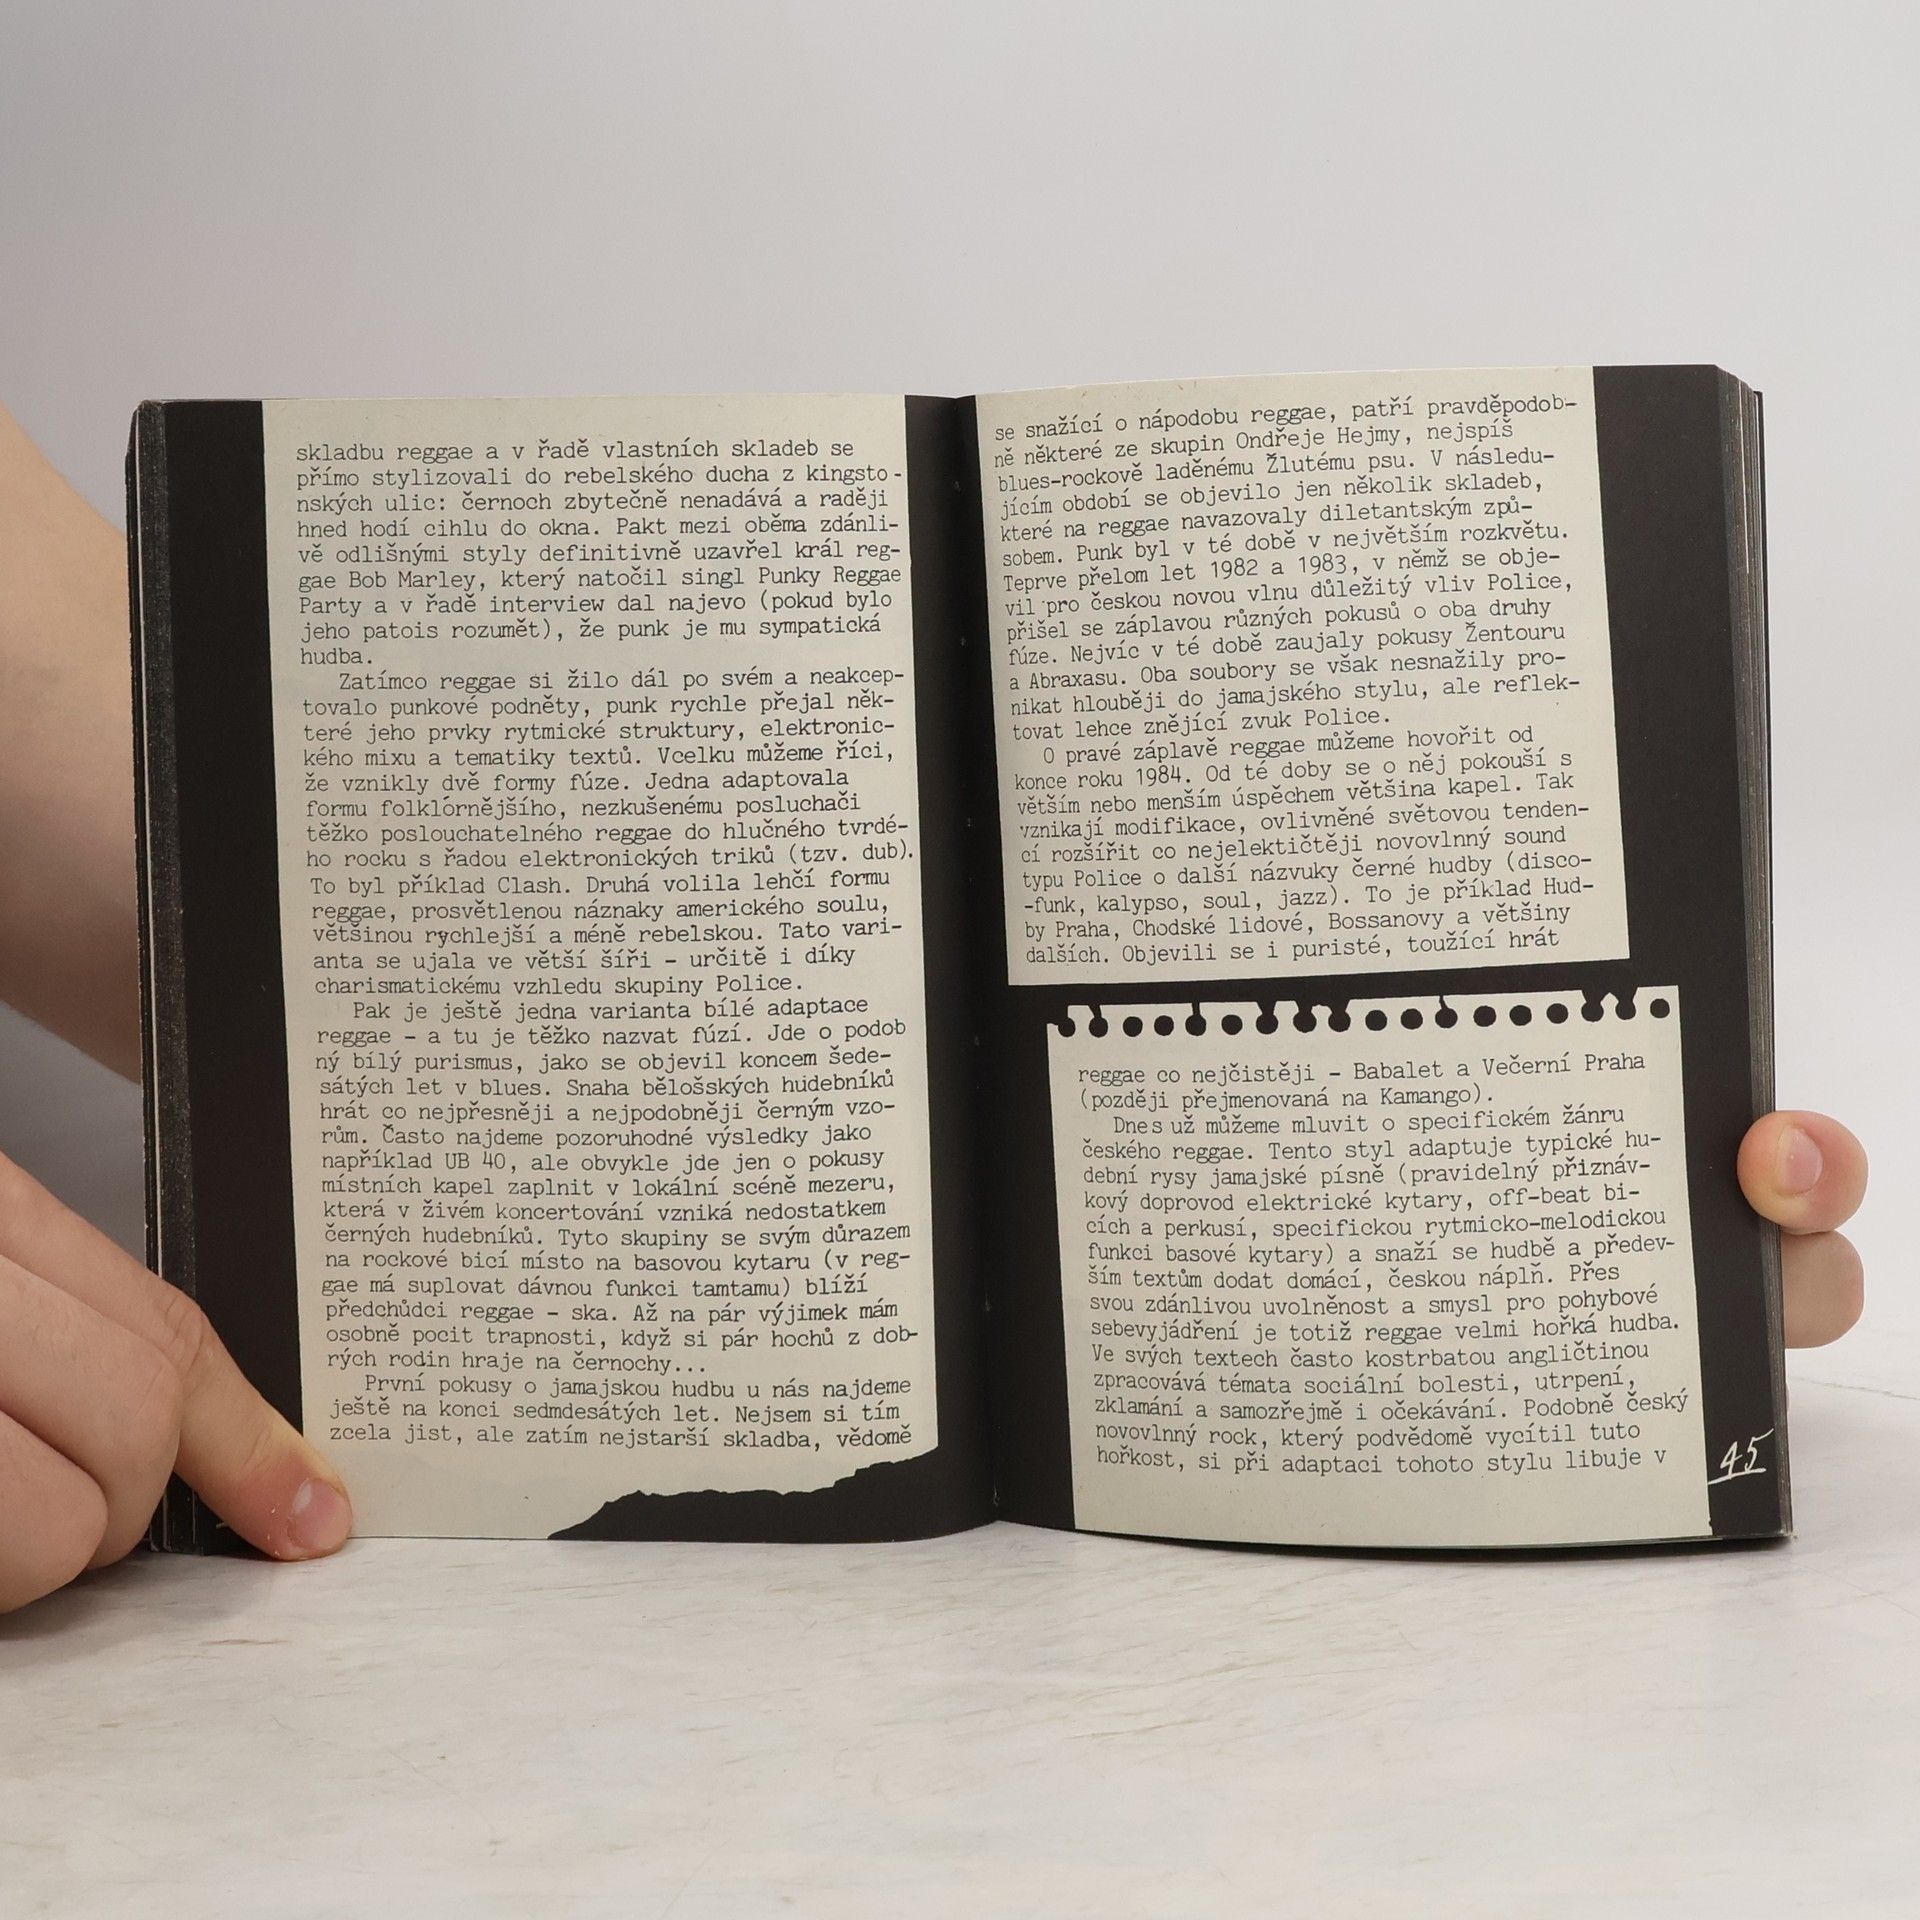 skladbu reggae a v řadě vlastních skladeb se
přímo stylizovali do rebelského ducha z kingsto-
nských ulic: černoch zbytečně nenadává a raději
hned hodí cihlu do okna. Pakt mezi oběma zdánli-
vě odlišnými styly definitivně uzavřel král reg-
gae Bob Marley, který natočil singl Punky Reggae
Party a v řadě interview dal najevo (pokud bylo
jeho patois rozumět), že punk je mu sympatická
hudba.
Zatímco reggae si žilo dál po svém a neakcep-
tovalo punkové podněty, punk rychle přejal něk-
teré jeho prvky rytmické struktury, elektronic-
kého mixu a tematiky textů. Vcelku můžeme říci,
že vznikly dvě formy fúze. Jedna adaptovala
formu folklórnějšího, nezkušenému posluchači
těžko poslouchatelného reggae do hlučného tvrdé-
ho rocku s řadou elektronických triků (tzv. dub).
To byl příklad Clash. Druhá volila lehčí formu
reggae, prosvětlenou náznaky amerického soulu,
většinou rychlejší a méně rebelskou. Tato vari-
anta se ujala ve větší šíři - určitě i díky
charismatickému vzhledu skupiny Police.
Pak je ještě jedna varianta bílé adaptace
reggae - a tu je těžko nazvat fúzí. Jde o podob
ný bílý purismus, jako se objevil koncem šede-
sátých let v blues. Snaha bělošských hudebníků
hrát co nejpřesněji a nejpodobněji černým vzo-
rům. Často najdeme pozoruhodné výsledky jako
například UB 40, ale obvykle jde jen o pokusy
místních kapel zaplnit v lokální scéně mezeru,
která v živém koncertování vzniká nedostatkem
černých hudebníků. Tyto skupiny se svým důrazem
na rockové bicí místo na basovou kytaru (v reg-
gae má suplovat dávnou funkci tamtamu) blíží
předchůdci reggae - ska. Až na pár výjimek mám
osobně pocit trapnosti, když si pár hochů z dob-
rých rodin hraje na černochy...
První pokusy o jamajskou hudbu u nás najdeme
ještě na konci sedmdesátých let. Nejsem si tím
zcela jist, ale zatím nejstarší skladba, vědomě
se snažící o nápodobu reggae, patří pravděpodob-
ně některé ze skupin Ondřeje Hejmy, nejspíš
blues-rockově laděnému Žlutému psu. V následu-
jícím období se objevilo jen několik skladeb,
které na reggae navazovaly diletantským způ-
sobem. Punk byl v té době v největším rozkvětu.
Teprve přelom let 1982 a 1983, v němž se obje-
vil pro českou novou vlnu důležitý vliv Police,
přišel se záplavou různých pokusů o oba druhy
fúze. Nejvíc v té době zaujaly pokusy Žentouru
a Abraxasu. Oba soubory se však nesnažily pro-
nikat hlouběji do jamajského stylu, ale reflek-
tovat lehce znějící zvuk Police.
O pravé záplavě reggae můžeme hovořit od
konce roku 1984. Od té doby se o něj pokouší s
větším nebo menším úspěchem většina kapel. Tak
vznikají modifikace, ovlivněné světovou tenden-
cí rozšířit co nejelektičtěji novovlnný sound
typu Police o další názvuky černé hudby (disco-
-funk, kalypso, soul, jazz). To je příklad Hud-
by Praha, Chodské lidové, Bossanovy a většiny
dalších. Objevili se i puristé, toužící hrát
reggae co nejčistěji - Babalet a Večerní Praha
(později přejmenovaná na Kamango).
Dnes už můžeme mluvit o specifickém žánru
českého reggae. Tento styl adaptuje typické hu-
dební rysy jamajské písně (pravidelný přiznáv-
kový doprovod elektrické kytary, off-beat bi-
cích a perkusí, specifickou rytmicko-melodickou
funkci basové kytary) a snaží se hudbě a předev-
ším textům dodat domácí, českou náplň. Přes
svou zdánlivou uvolněnost a smysl pro pohybové
sebevyjádření je totiž reggae velmi hořká hudba.
Ve svých textech často kostrbatou angličtinou
zpracovává témata sociální bolesti, utrpení,
zklamání a samozřejmě i očekávání. Podobně český
novovlnný rock, který podvědomě vycítil tuto
hořkost, si při adaptaci tohoto stylu libuje v
45